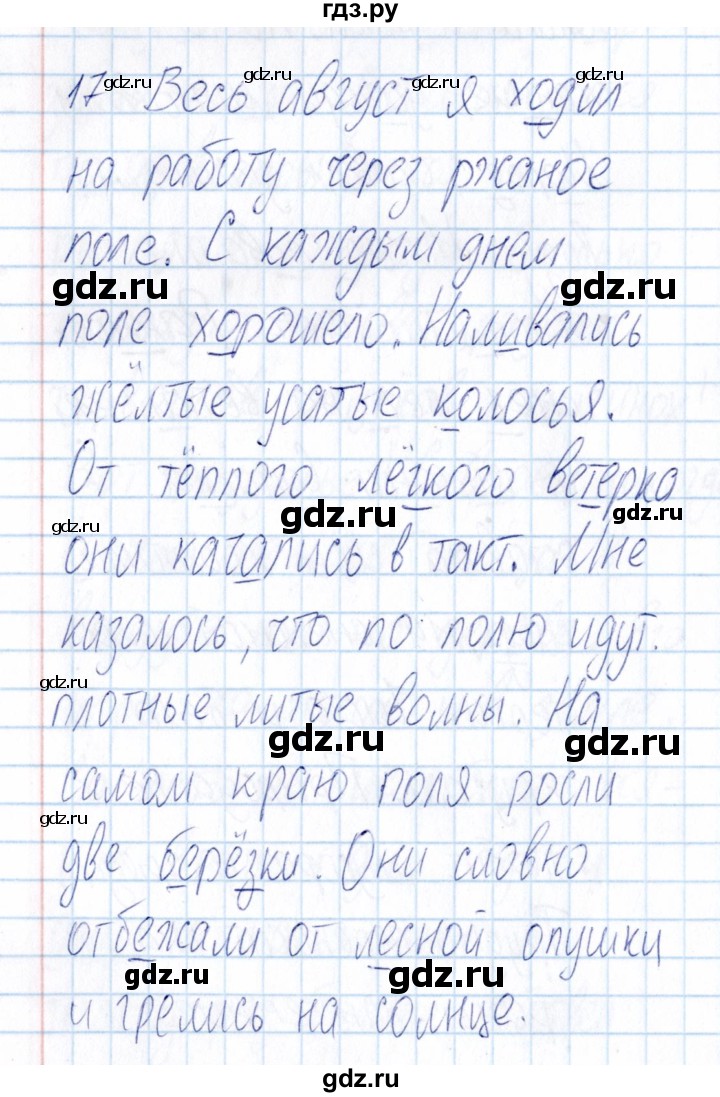 гдз.ру
17 Весь август я ходил
gdz.ru gdz.ru gdz.ru gdz.ru
на работу через ржаное
поле. С каждым днем
gdz.ru gdz.ru
поле хорошело. Наливались
жёлтые усатые колосья.
От тёплого лёгкого ветерка
gdz.ru gdz.ru gdz.ru
они качались в такт. Мне
казалось, что по полю идут
gdz.ru
плотные литые волны. На
gdz.ru gdz.ru
самом краю поля росли
gdz.ru
две берёзки. Они словно
отбежали от лесной опушки
gdz.ru gdz.ru
и грелись на солнце.
gdz.ru